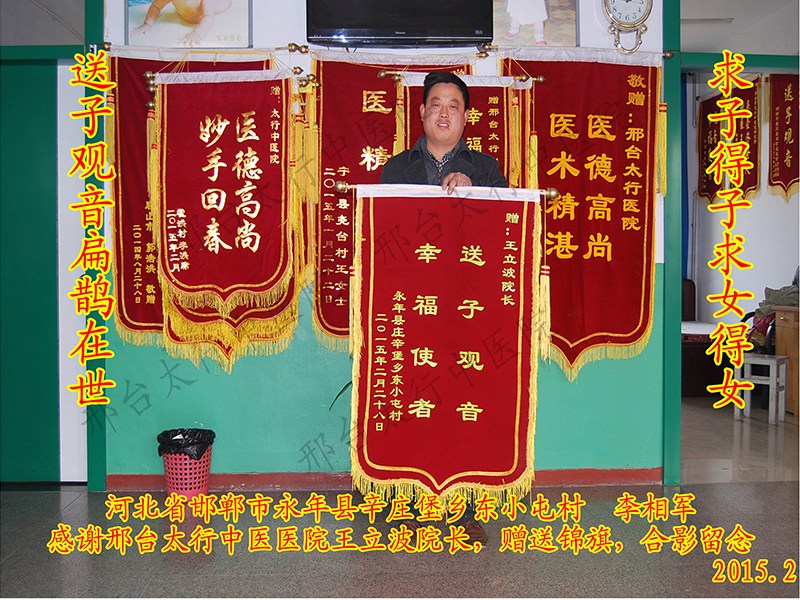 送子观音扁鹊在世
求子得子求女得女
赠：太行中医院
医德高尚
妙手回春
二〇一五年二月
唐山市 郭浩洪 敬赠
二〇一四年八月二十八日
医
精
宁县尧台村王女士
二〇一五年一月二十二日
赠邢台太行
幸福
敬赠：邢台太行医院
医德高尚
医术精湛
送子观音
赠：王立波院长
送子观音
幸福使者
永年县庄辛堡乡东小屯村
二〇一五年二月二十八日
邢台太行中医院
邢台太行中医院
河北省邯郸市永年县辛庄堡乡东小屯村 李相军
感谢邢台太行中医医院王立波院长，赠送锦旗，合影留念
2015.2